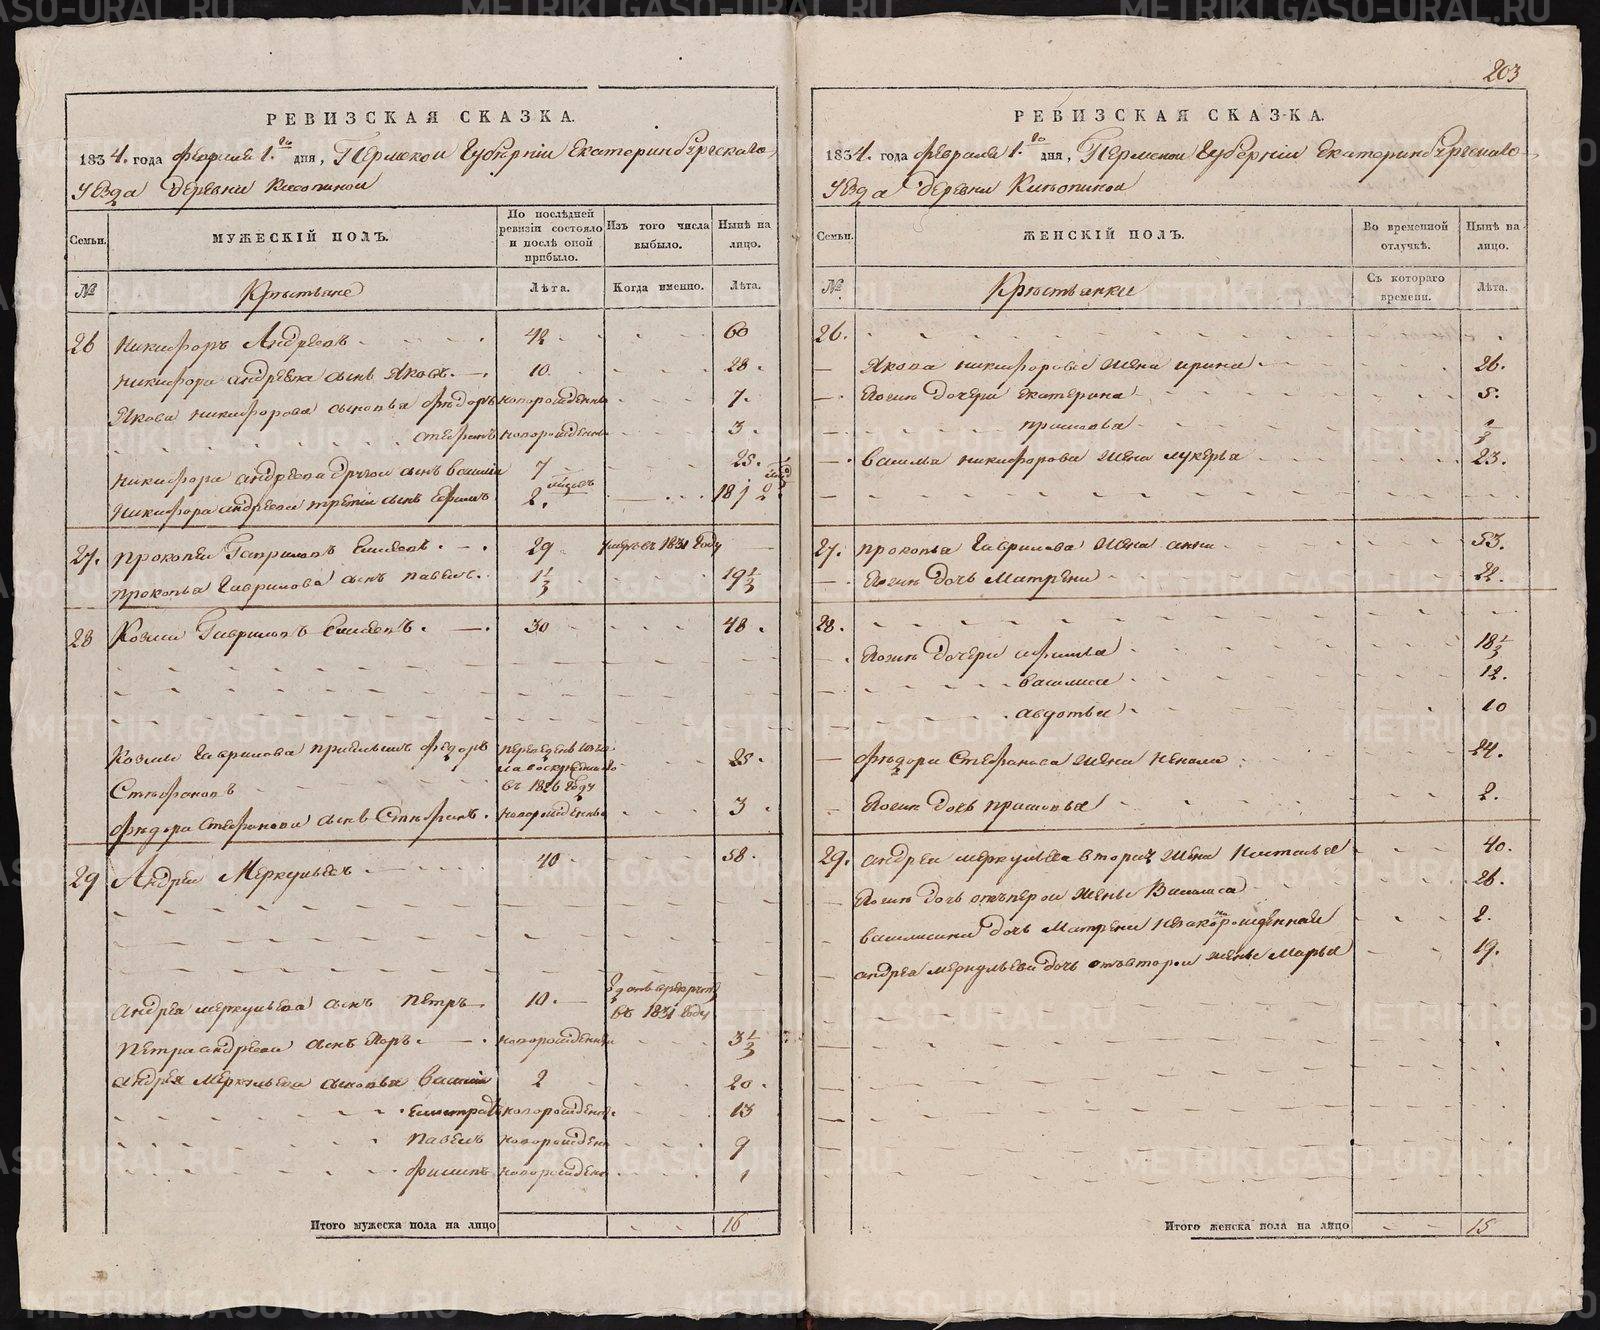 203
РЕВИЗСКАЯ СКАЗКА.
1834. года февраля 1.го дня, Пермской Губернии Екатеринбургскаго
Уезда деревни
Семьи.
МУЖЕСКІЙ ПОЛЪ.
По послѣдней ревизіи состояло и послѣ оной прибыло.
Изъ того числа выбыло.
Нынѣ на лицо.
№
Крестьяне
Лѣта.
Когда именно.
Лѣта.
26 Никифоръ Андреевъ 42 60
Никифора андреева сынъ Яковъ. 10. 28.
Якова никифорова сыновья Федоръ новорожденны 7.
Стефанъ новорожденны 3.
Никифора андреева другой сынъ василий 7 25.
Никифора андреева третий сынъ Ефимъ 2. 18
27. Прокопей Гаврилов 29 умеръ въ 1831 Году
Прокопья гаврилова сынъ павелъ. 1 1/3 19 1/3
28 Козма Гаврилов 30 48.
Козмы гаврилова приемышъ федоръ
Стефановъ
въ 1826 Году 25.
Федора стефанова сынъ Стефанъ. новорожденны 3.
29 Андрей Меркурьевъ 40 58.
Андрея меркурьева сынъ Петръ 10.
въ 1831 Году
Петра андреева сынъ новорожденны 3 1/3
андрея Меркурьева сыновья Василий 2 20.
новорожденны. 13
Павелъ новорожден 9
Филипъ новорожден 1
Итого мужеска пола на лицо 16
РЕВИЗСКАЯ СКАЗКА.
1834. года февраля 1.го дня, Пермской Губернии Екатеринбургскаго
Уезда деревни
Семьи.
ЖЕНСКІЙ ПОЛЪ.
Во временной отлучкѣ.
Нынѣ на лицо.
№
Крестьянки
Съ котораго времени.
Лѣта.
26.
Якова никифорова жена ирина 26.
Ягоже дочери екатерина 5.
василья никифорова жена лукерья 23.
27. Прокопья гаврилова жена анна 53.
Ягоже дочь Матрена 22.
28.
Ягоже дочери афимья 18 1/3
василиса 12.
авдотья 10
Федора Стефанова жена 24.
Ягоже дочь 2.
29. андрея меркурьева вторая жена наталья 40.
Ягоже дочь отъ первой жены Василиса 26.
василисина дочь Матрена незаконнорожденная 2.
андрея меркурьева дочь отъ второй жены Марья 19.
Итого женска пола на лицо 15
METRIKI.GASO-URAL.RU